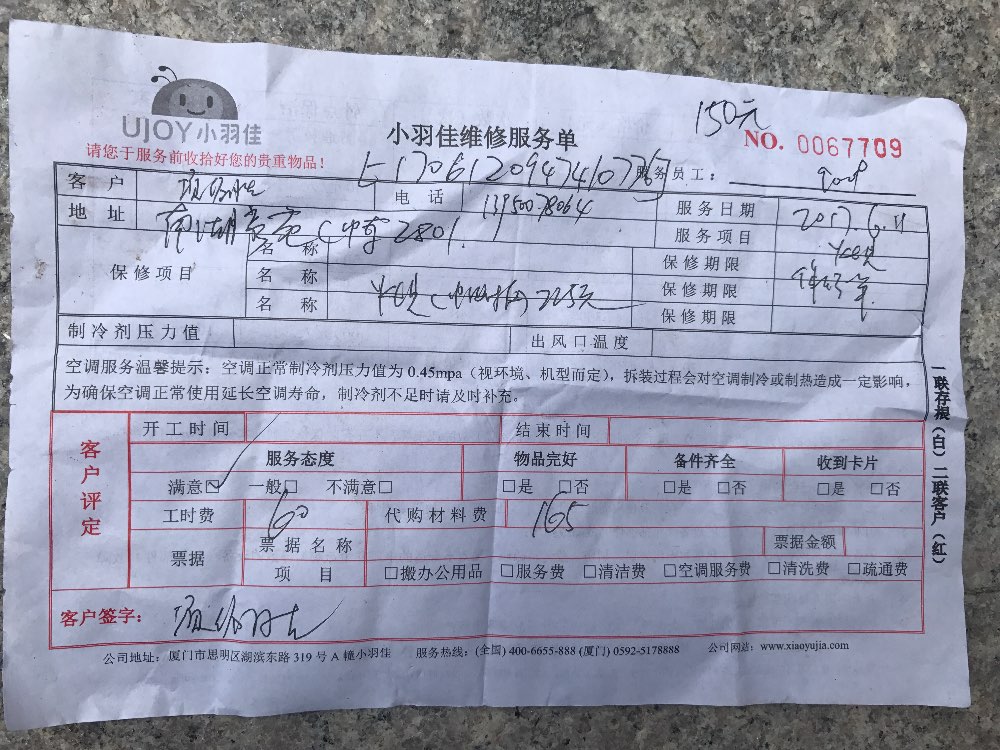 UJOY小羽佳
小羽佳维修服务单
150元
NO. 0067709
请您于服务前收拾好您的贵重物品！
服务员工：
客 户
电 话
13950078064
服务日期
2017.6.11
地 址
2801
服务项目
保修项目
名 称
保修期限
名 称
225元
保修期限
名 称
保修期限
制冷剂压力值
出风口温度
空调服务温馨提示：空调正常制冷剂压力值为 0.45mpa（视环境、机型而定），拆装过程会对空调制冷或制热造成一定影响，
为确保空调正常使用延长空调寿命，制冷剂不足时请及时补充。
一联存根（白）二联客户（红）
客户评定
开工时间
结束时间
服务态度
物品完好
备件齐全
收到卡片
满意☑ 一般□ 不满意□
□是 □否
□是 □否
□是 □否
工时费
60
代购材料费
165
票据
票据名称
票据金额
项 目
□搬办公用品 □服务费 □清洁费 □空调服务费 □清洗费 □疏通费
客户签字：
公司地址：厦门市思明区湖滨东路 319 号 A 幢小羽佳 服务热线：(全国) 400-6655-888 (厦门) 0592-5178888 公司网站：www.xiaoyujia.com